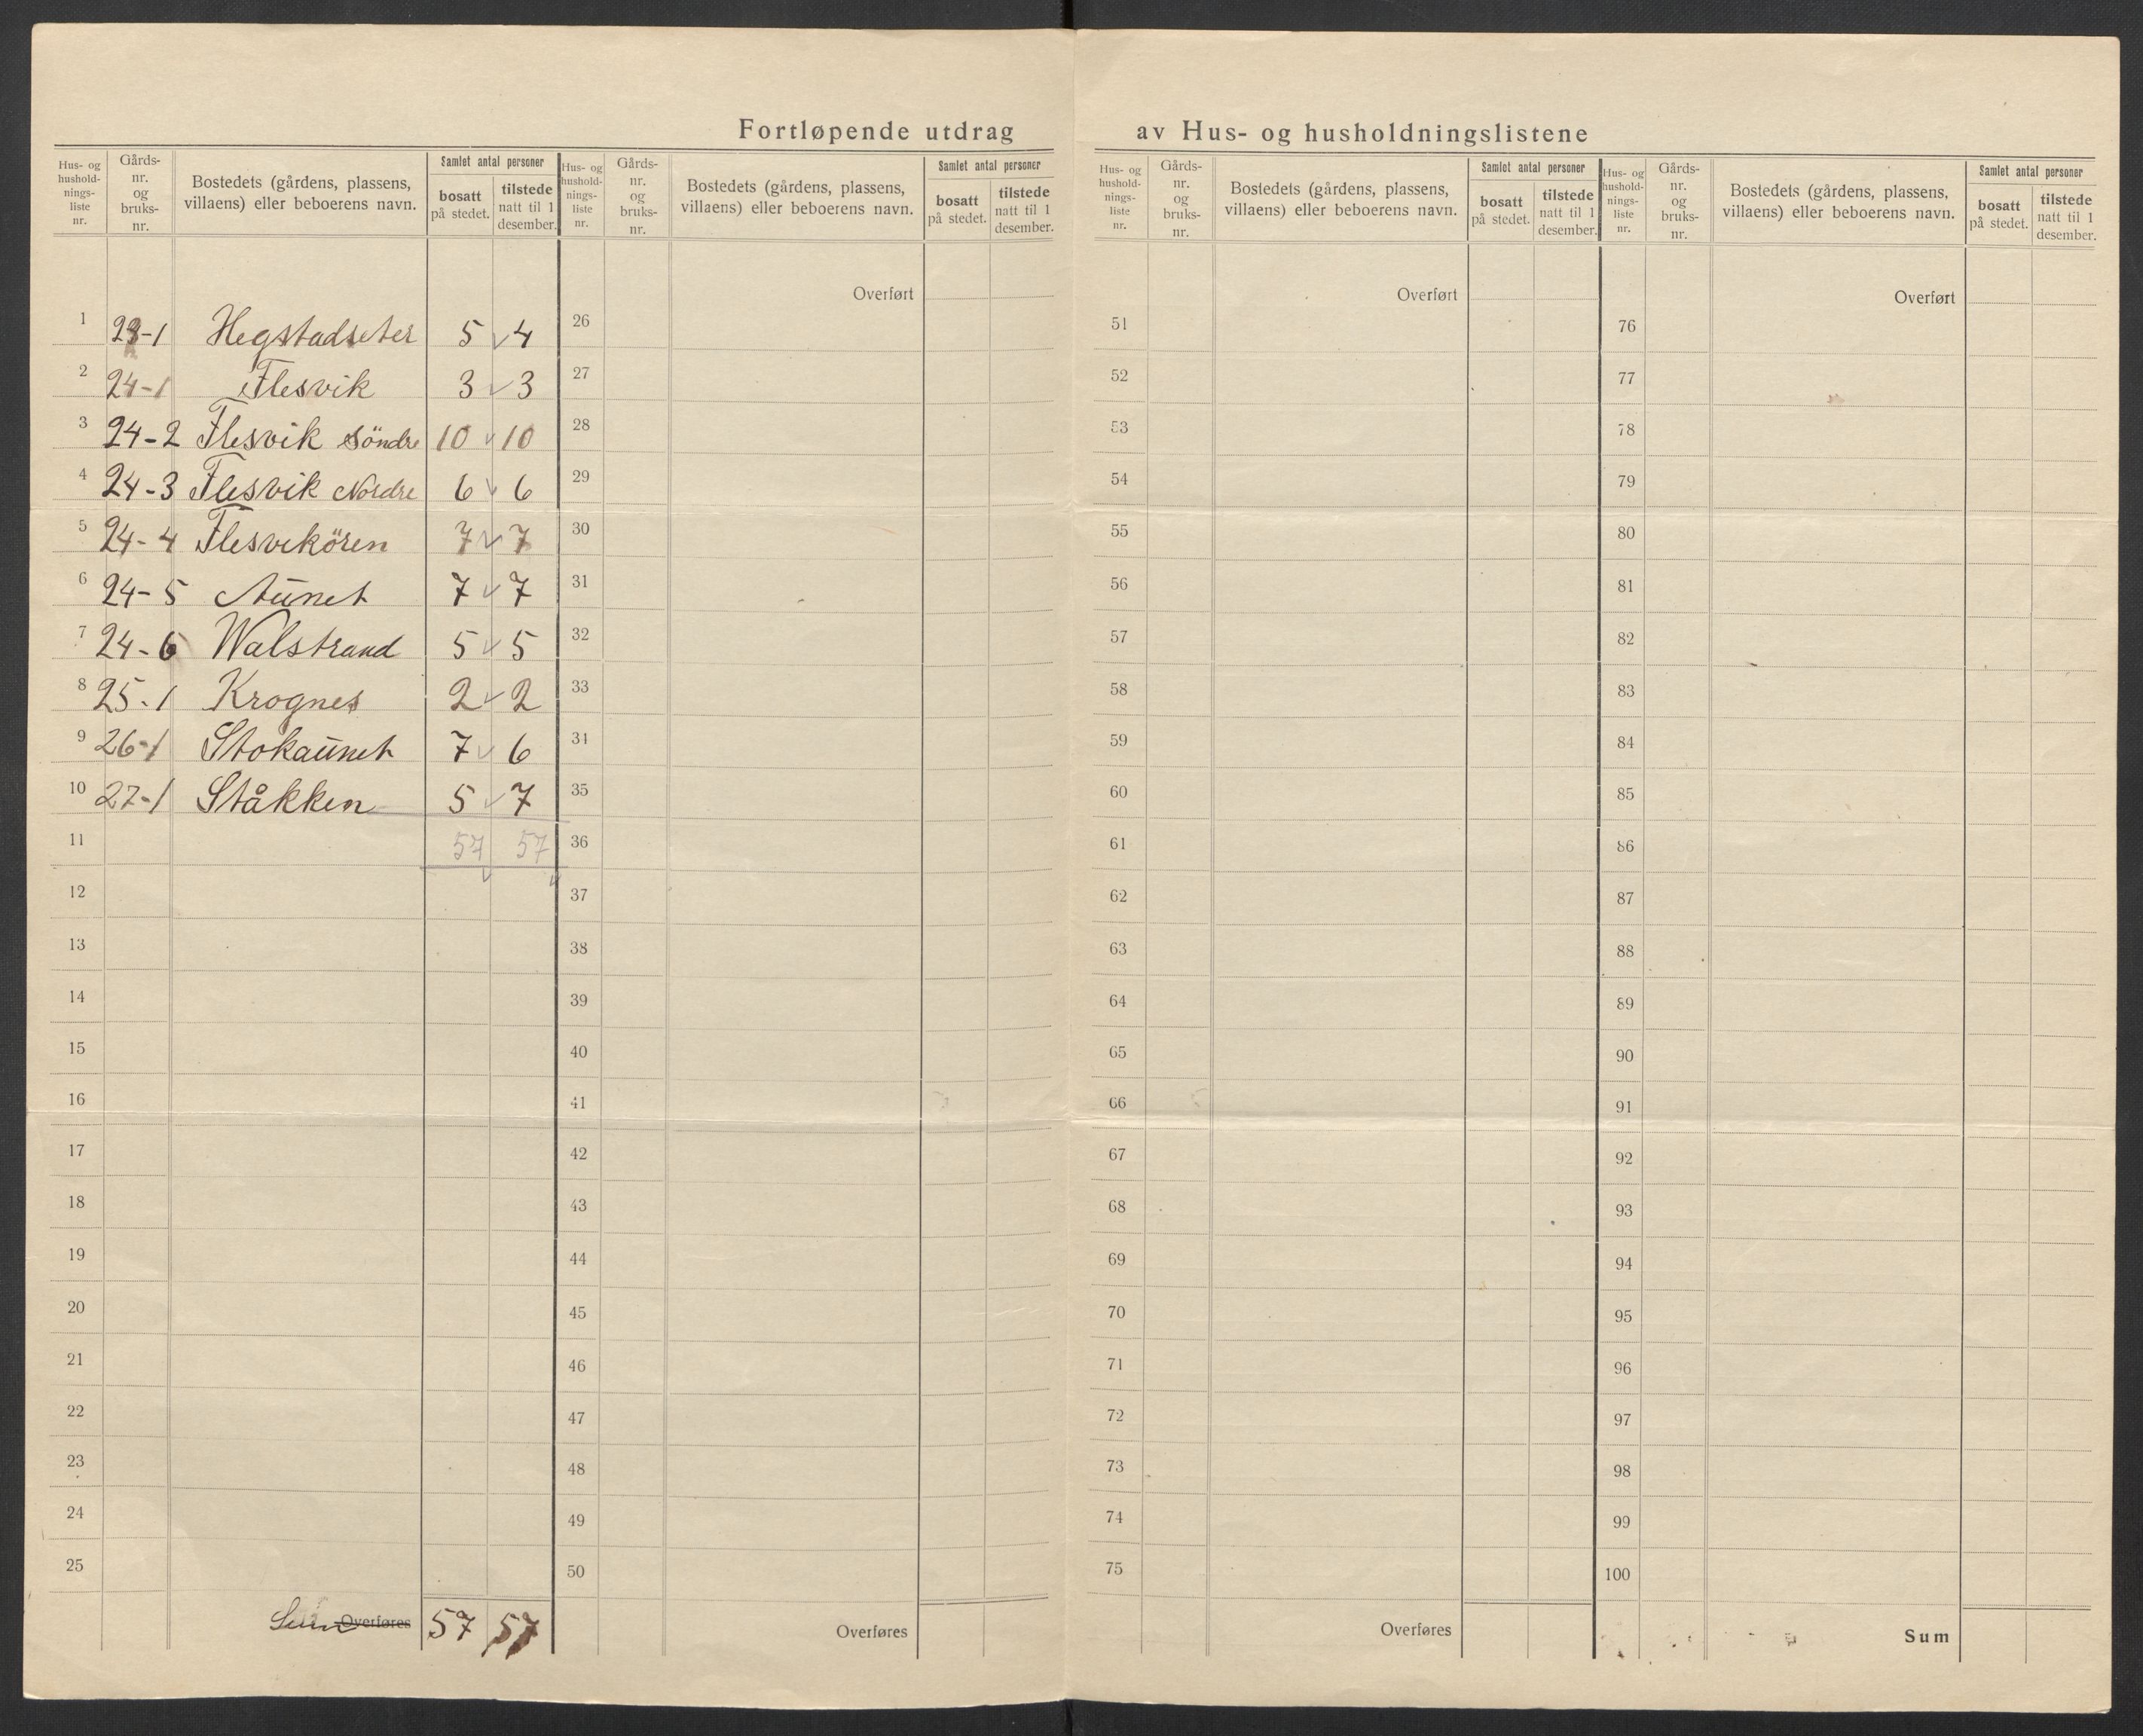 Fortløpende utdrag av Hus- og husholdningslistene
Hus- og hushold- nings- liste nr. | Gårds- nr. og bruks- nr. | Bostedets (gårdens, plassens, villaens) eller beboerens navn. | Samlet antal personer | bosatt på stedet. | tilstede natt til 1 desember.
1 23-1 Hegstadseter 5 4
2 24-1 Flesvik 3 3
3 24-2 Flesvik Söndre 10 10
4 24-3 Flesvik Nordre 6 6
5 24-4 Flesvikören 7 7
6 24-5 Aunet 7 7
7 24-6 Walstrand 5 5
8 25-1 Krognes 2 2
9 26-1 Stokaunet 7 6
10 27-1 Ståkken 5 7
11 57 57
12
13
14
15
16
17
18
19
20
21
22
23
24
25
Sum Overføres 57 57
Hus- og hushold- nings- liste nr. | Gårds- nr. og bruks- nr. | Bostedets (gårdens, plassens, villaens) eller beboerens navn. | Samlet antal personer | bosatt på stedet. | tilstede natt til 1 desember.
Overført
26
27
28
29
30
31
32
33
34
35
36
37
38
39
40
41
42
43
44
45
46
47
48
49
50
Overføres
Hus- og hushold- nings- liste nr. | Gårds- nr. og bruks- nr. | Bostedets (gårdens, plassens, villaens) eller beboerens navn. | Samlet antal personer | bosatt på stedet. | tilstede natt til 1 desember.
Overført
51
52
53
54
55
56
57
58
59
60
61
62
63
64
65
66
67
68
69
70
71
72
73
74
75
Overføres
Hus- og hushold- nings- liste nr. | Gårds- nr. og bruks- nr. | Bostedets (gårdens, plassens, villaens) eller beboerens navn. | Samlet antal personer | bosatt på stedet. | tilstede natt til 1 desember.
Overført
76
77
78
79
80
81
82
83
84
85
86
87
88
89
90
91
92
93
94
95
96
97
98
99
100
Sum